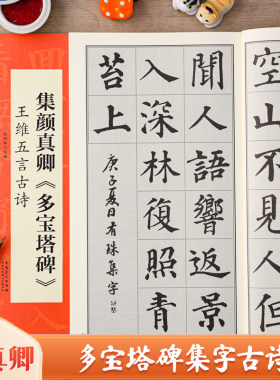 集颜真卿《多宝塔碑》
王维五言古诗
空山不见人但
聞人語響返景
入深林復照青
苔上
庚子夏日有珠集字
真卿
多宝塔碑集字古诗